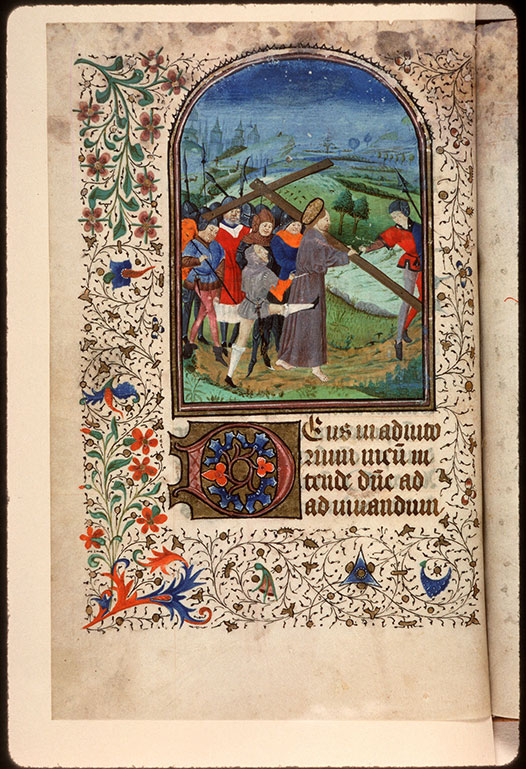 Deus in adiuto
rium meū in
tende dn̄e ad
adiuuandum